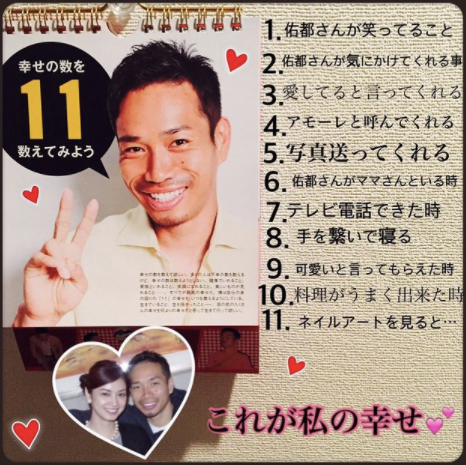 幸せの数を
11
数えてみよう
1.佑都さんが笑ってること
2.佑都さんが気にかけてくれる事
3.愛してると言ってくれる
4.アモーレと呼んでくれる
5.写真送ってくれる
6.佑都さんがママさんといる時
7.テレビ電話できた時
8.手を繋いで寝る
9.可愛いと言ってもらえた時
10.料理がうまく出来た時
11.ネイルアートを見ると…
これが私の幸せ